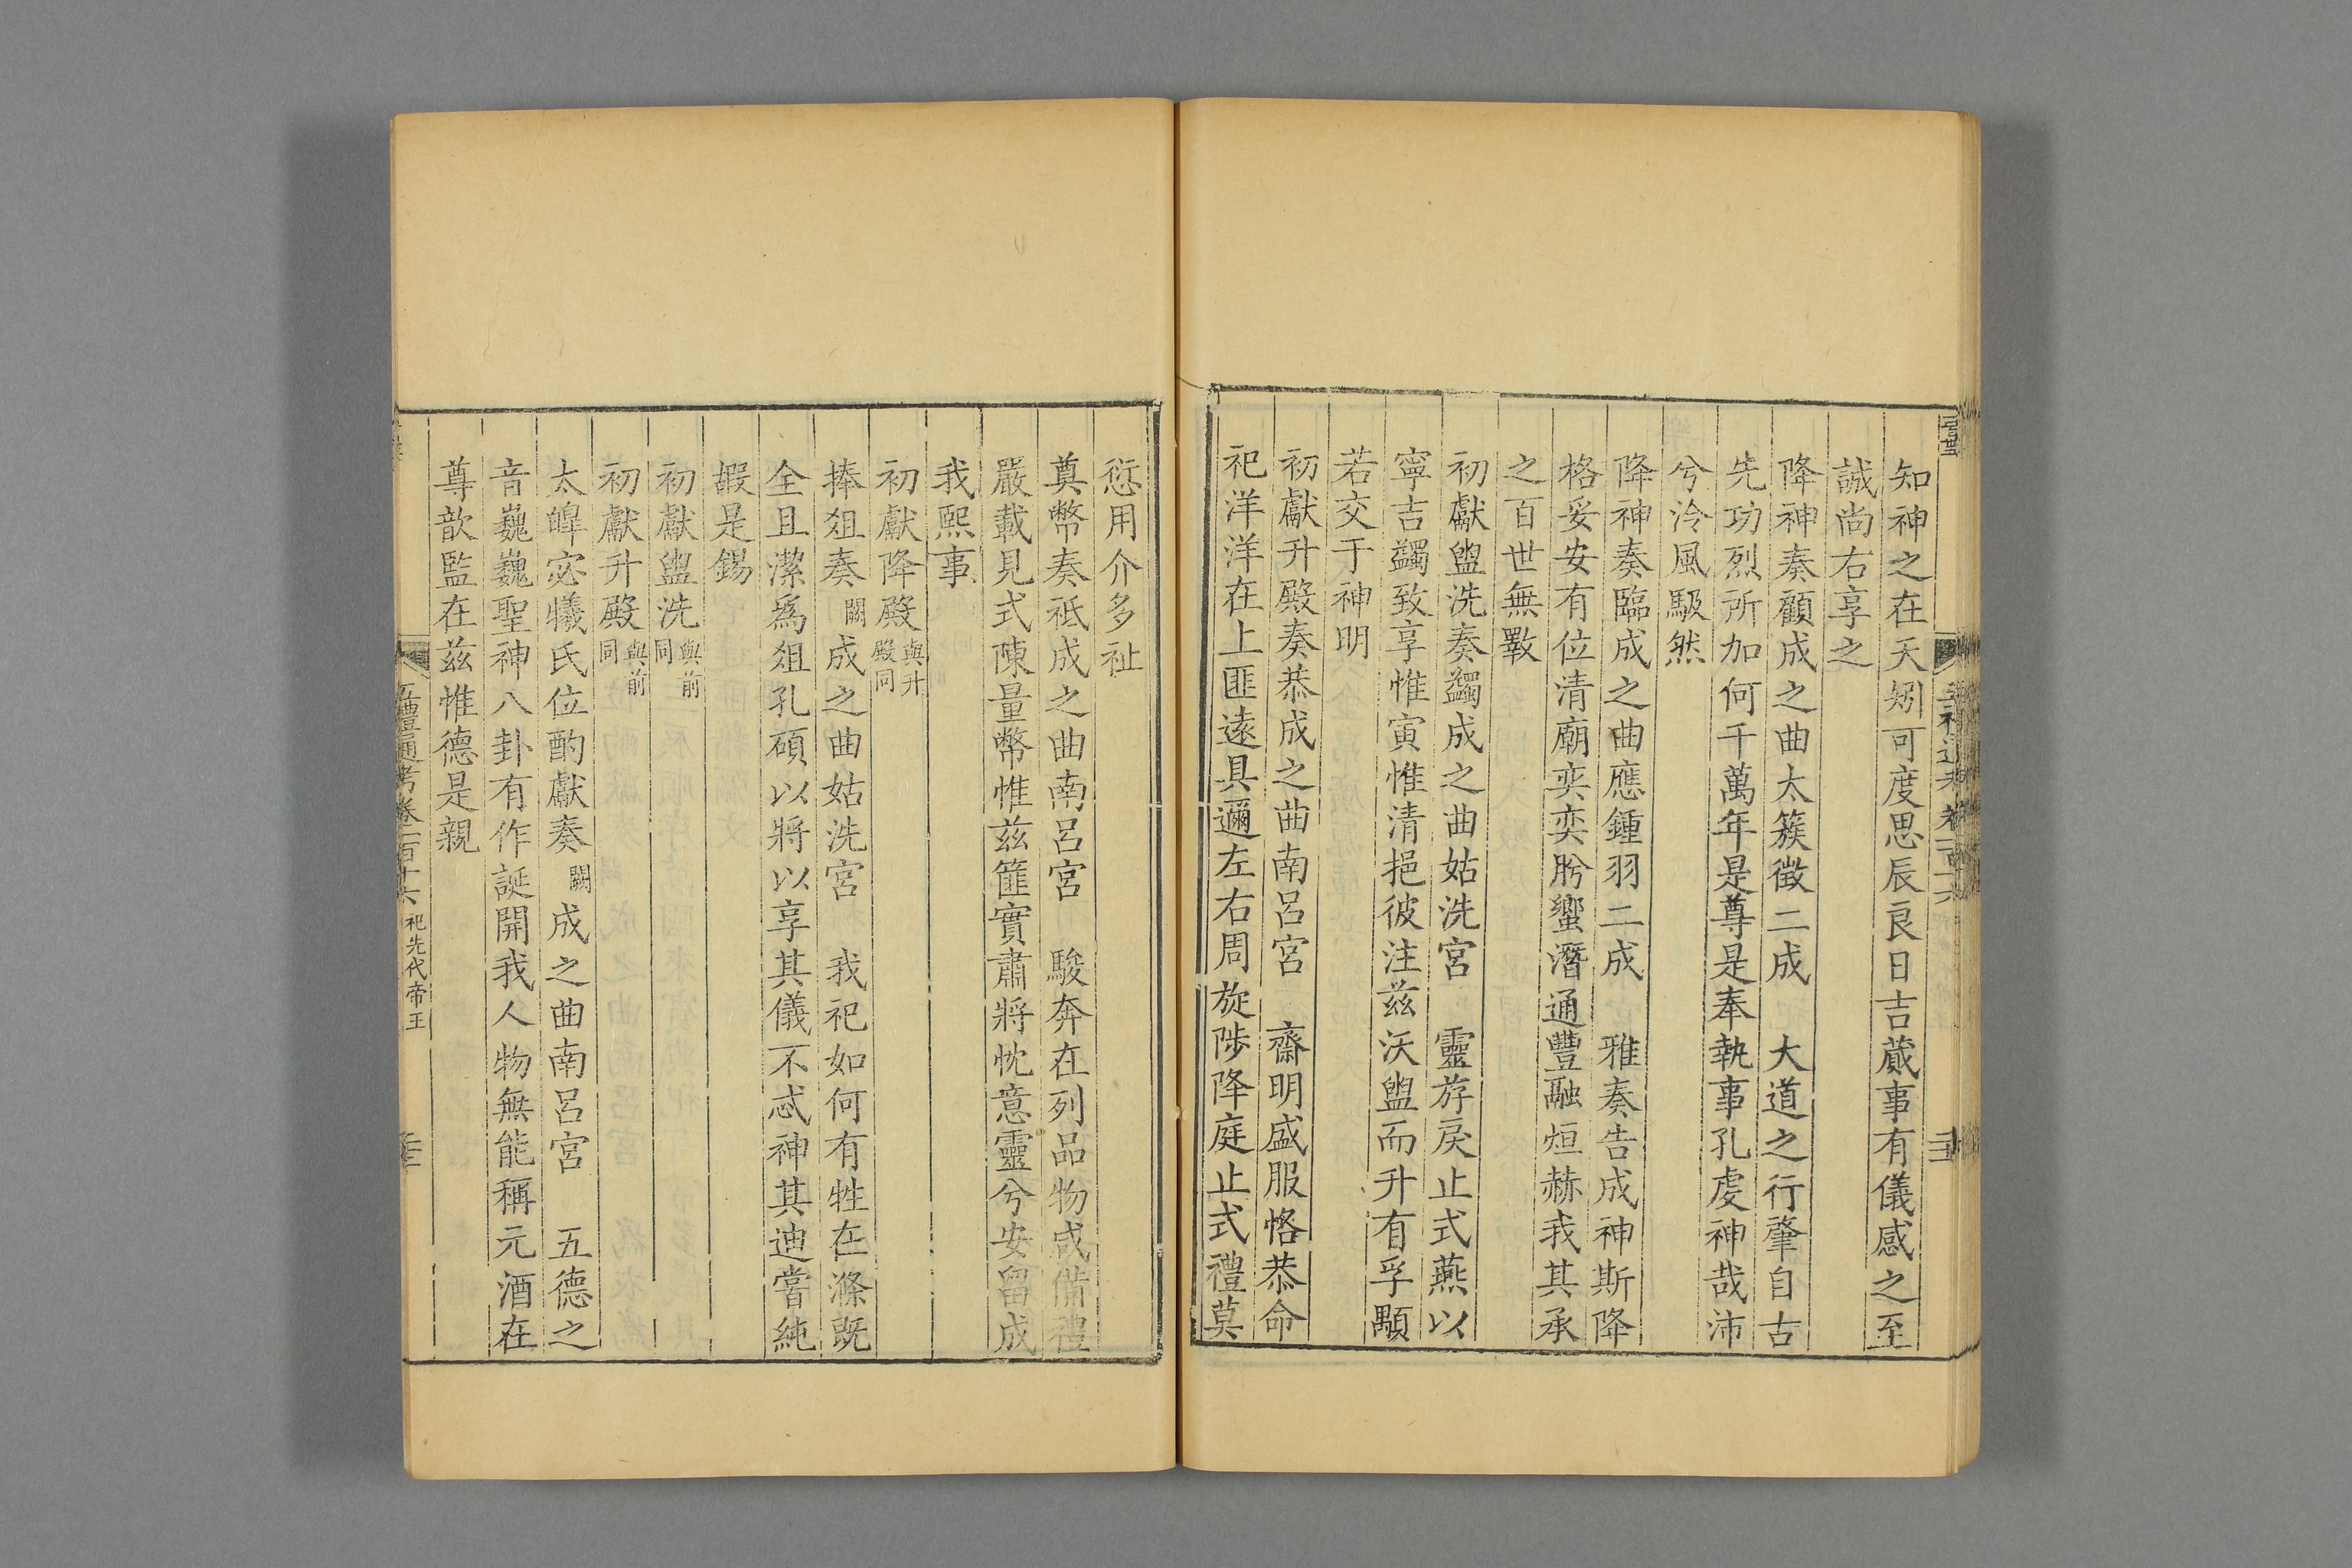 知神之在天矧可度思辰良日吉蕆事有儀感之至
誠尚右享之
降神奏顧成之曲太簇徵二成　大道之行肇自古
先功烈所加何千萬年是尊是奉執事孔虔神哉沛
兮泠風馺然
降神奏臨成之曲應鍾羽二成　雅奏告成神斯降
格妥安有位清廟奕奕肸蠁潛通豐融烜赫我其承
之百世無斁
初獻盥洗奏蠲成之曲姑洗宮　靈斿戾止式燕以
寧吉蠲致享惟寅惟清挹彼注兹沃盥而升有孚顒
若交于神明
初獻升殿奏恭成之曲南呂宮　齋明盛服恪恭命
祀洋洋在上匪遠具邇左右周旋陟降庭止式禮莫
愆用介多祉
奠幣奏祇成之曲南呂宮　駿奔在列品物咸備禮
嚴載見式陳量幣惟兹篚實肅將忱意靈兮安留成
我熙事
初獻降殿與升殿同
捧俎奏闕成之曲姑洗宮　我祀如何有牲在滌既
全且潔爲俎孔碩以將以享其儀不忒神其迪嘗純
嘏是錫
初獻盥洗與前同
初獻升殿與前同
太皥宓犧氏位酌獻奏闕成之曲南呂宮　五德之
音巍巍聖神八卦有作誕開我人物無能稱元酒在
尊歆監在兹惟德是親
五禮通考卷一百十六　祀先代帝王